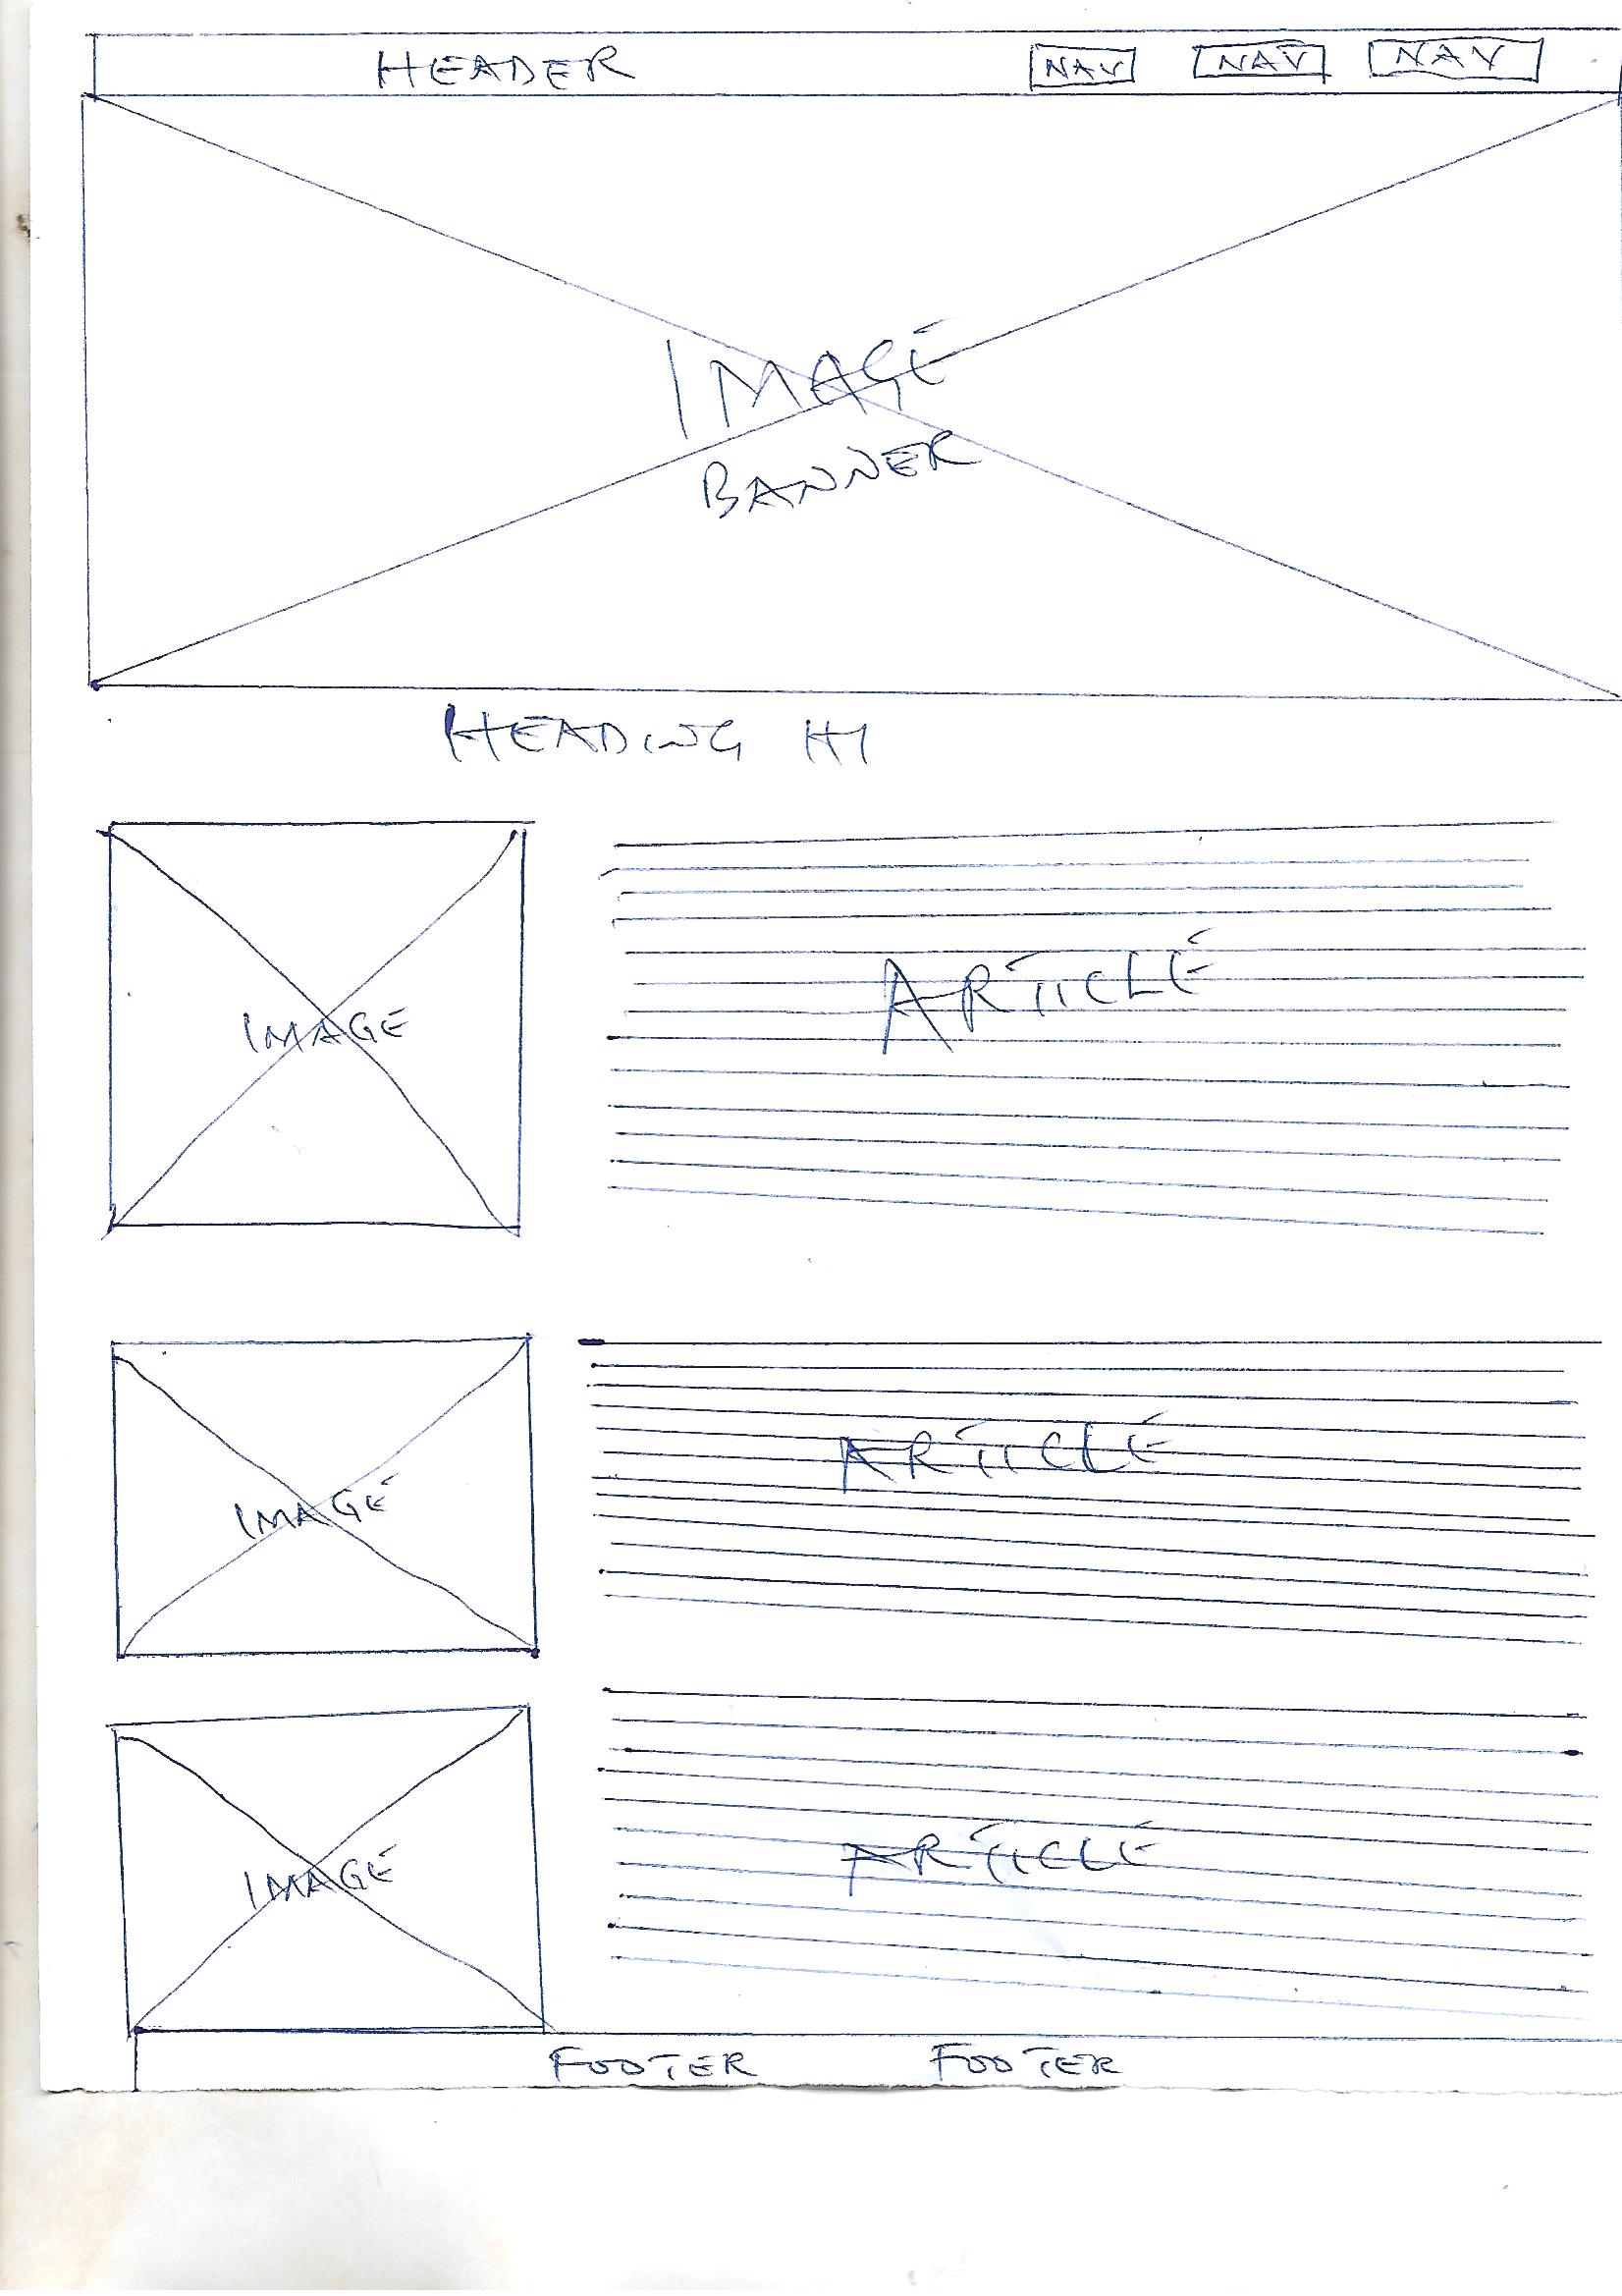 HEADER NAV NAV NAV
IMAGE
BANNER
HEADING H1
IMAGE
ARTICLE
IMAGE
ARTICLE
IMAGE
ARTICLE
FOOTER FOOTER